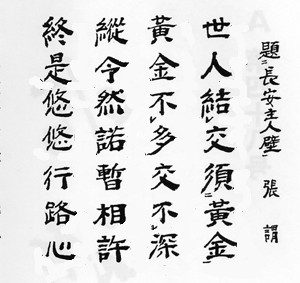 題長安主人壁 張謂
世人結交須黃金
黃金不多交不深
縱令然諾暫相許
終是悠悠行路心